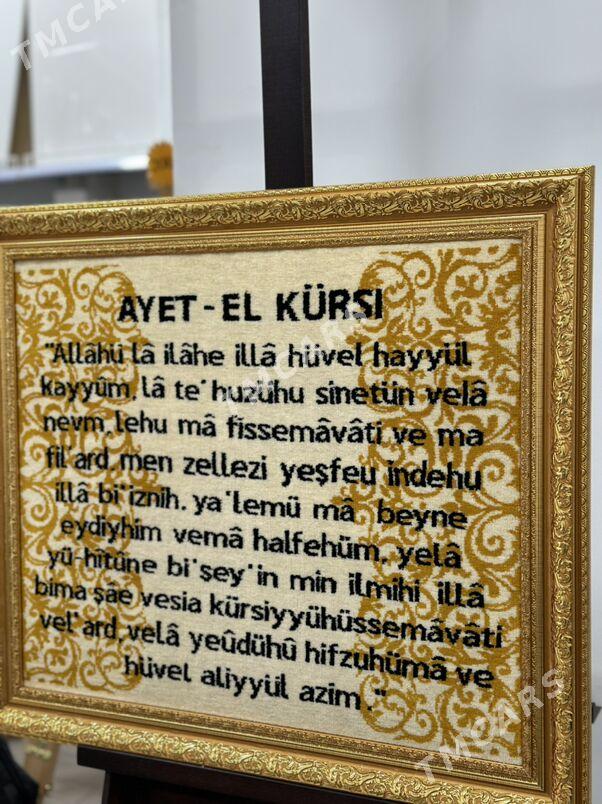 AYET-EL KÜRSI
"Allâhü lâ ilâhe illâ hüvel hayyül
kayyûm, lâ te'huzühu sinetün velâ
nevm, lehu mâ fissemâvâti ve ma
fil'ard, men zellezi yeşfeu indehu
illâ bi'iznih, ya'lemü mâ beyne
eydiyhim vemâ halfehüm, yelâ
yü-hîtûne bi'şey'in min ilmihi illâ
bima şâe vesia kürsiyyühüssemâvâti
vel'ard, velâ yeûdühû hifzuhümâ ve
hüvel aliyyül azim."
TMCARS
TMCARS
TMCARS